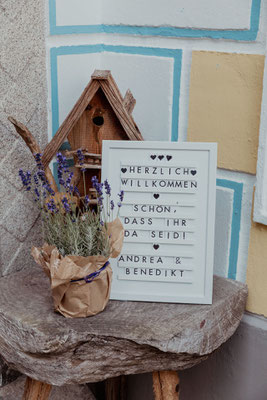 ♥♥♥
♥HERZLICH♥
WILLKOMMEN
♥
SCHÖN,
DASS IHR
DA SEID!
♥
ANDREA &
BENEDIKT